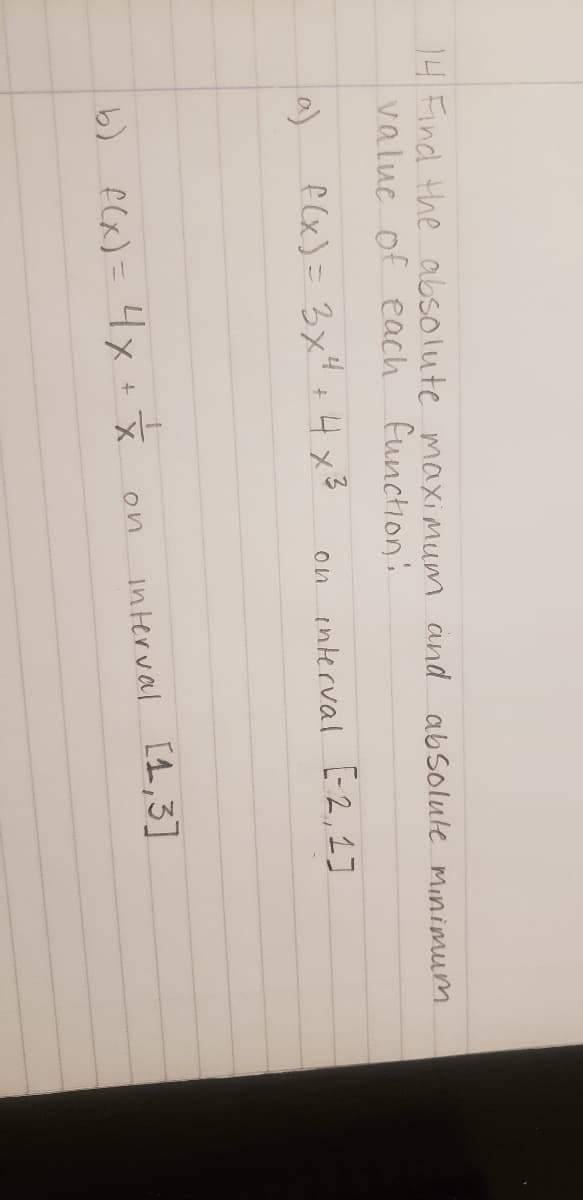 14 Find the absolute maximum and absolute minimum
value of each function:
a) f(x) = 3x⁴ + 4x³ on interval [-2, 1]
b) f(x) = 4x + 1/x on interval [1, 3]